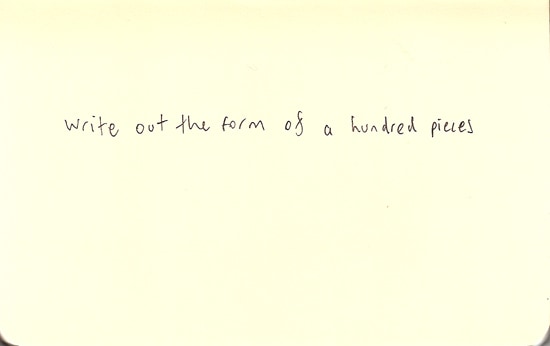 write out the form of a hundred pieces